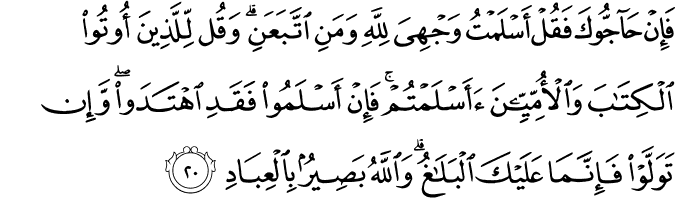 فَإِنۡ حَآجُّوكَ فَقُلۡ أَسۡلَمۡتُ وَجۡهِيَ لِلَّهِ وَمَنِ ٱتَّبَعَنِۗ وَقُل لِّلَّذِينَ أُوتُواْ
ٱلۡكِتَٰبَ وَٱلۡأُمِّيِّـۧنَ ءَأَسۡلَمۡتُمۡۚ فَإِنۡ أَسۡلَمُواْ فَقَدِ ٱهۡتَدَواْۖ وَّإِن
تَوَلَّوۡاْ فَإِنَّمَا عَلَيۡكَ ٱلۡبَلَٰغُۗ وَٱللَّهُ بَصِيرُۢ بِٱلۡعِبَادِ ٢٠